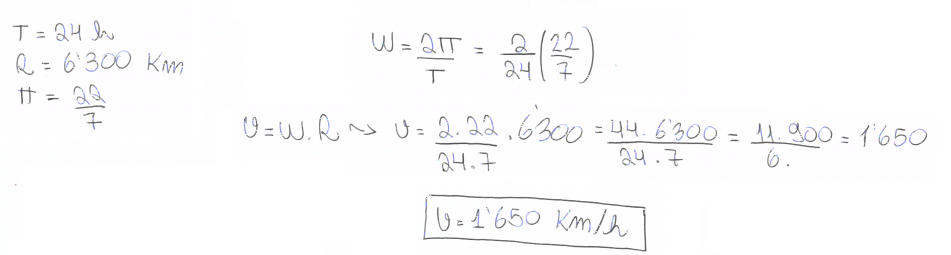 T = 24 h
R = 6'300 Km
π = 22/7
W = 2π/T = 2/24 (22/7)
v = W.R ~> v = 2.22/24.7 . 6'300 = 44.6'300/24.7 = 11.900/6. = 1'650
v = 1'650 Km/h